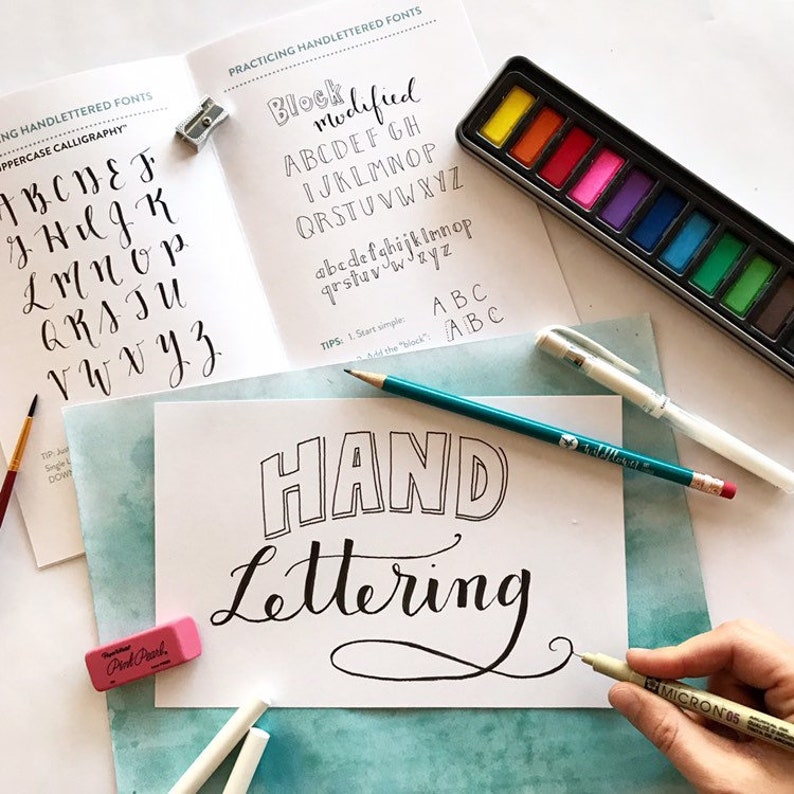 ING HANDLETTERED FONTS
UPPERCASE CALLIGRAPHY™
A B C D E F
G H I J K
L M N O P
Q R S T U
V W X Y Z
TIP: Jus
Single L
DOWN
PRACTICING HANDLETTERED FONTS
Block
modified
ABCDEFGH
IJKLMNOP
QRSTUVWXYZ
abcdefghijklmnop
qrstuvwxyz
TIPS: 1. Start simple:
A B C
2. Add the "block":
A B C
HAND
Lettering
wildflower
PaperMate
Pink Pearl
MICRON 05